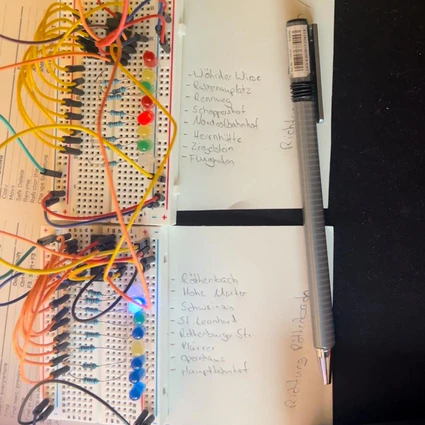 - Wöhrder Wiese
- Rathenauplatz
- Rennweg
- Schoppershof
- Nordostbahnhof
- Herrnhütte
- Ziegelstein
- Flughafen
- Röthenbach
- Hohe Marter
- Schweinau
- St. Leonhard
- Rothenburger Str.
- Plärrer
- Opernhaus
- Hauptbahnhof
Richtung Röthenbach